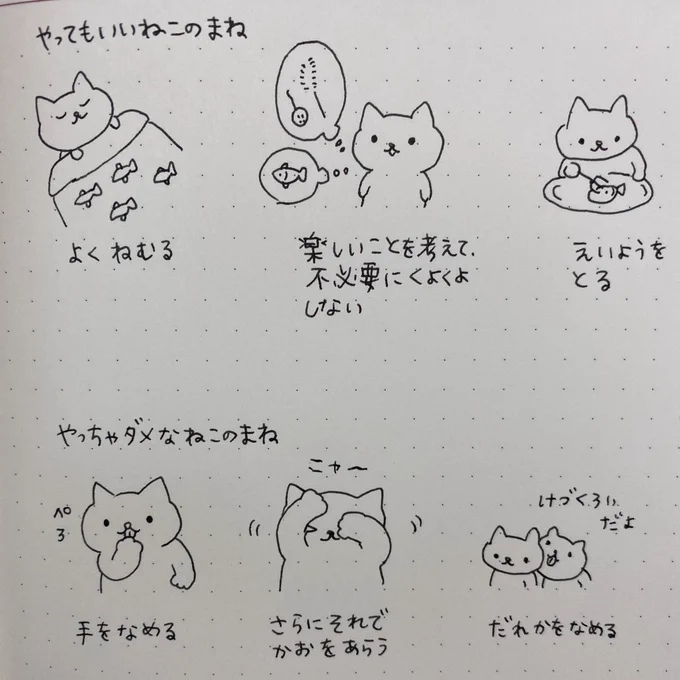 やってもいいねこのまね
よくねむる
楽しいことを考えて、
不必要にくよくよ
しない
えいようを
とる
やっちゃダメなねこのまね
ペろ
手をなめる
ニャ〜
さらにそれで
かおをあらう
けづくろい
だよ
だれかをなめる